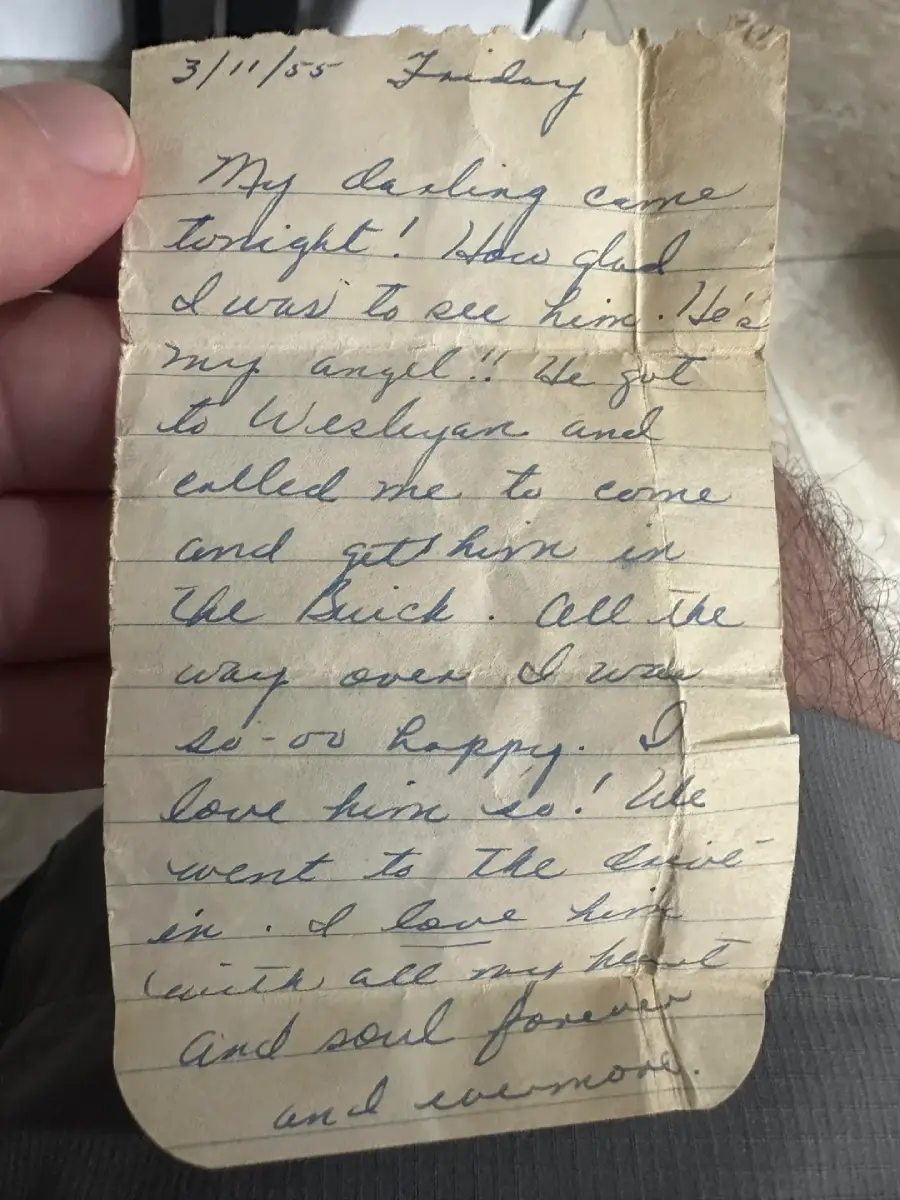 3/11/55 Friday
My darling came
tonight! How glad
I was to see him. He's
my angel!! He got
to Wesleyan and
called me to come
and get him in
the Buick. All the
way over I was
so-oo happy. I
love him so! We
went to the drive-
in. I love him
with all my heart
and soul forever
and evermore.